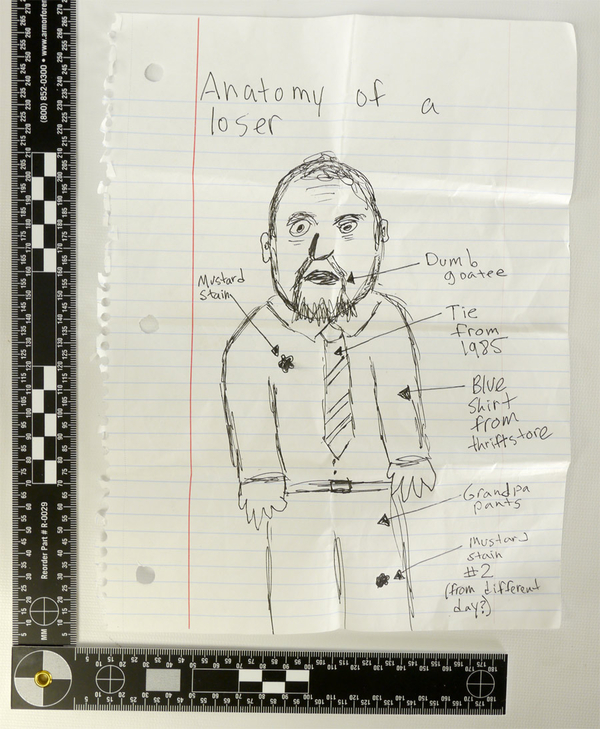 Anatomy of a
loser
Dumb
goatee
Mustard
stain
Tie
from
1985
Blue
shirt
from
thriftstore
Grandpa
pants
Mustard
stain
#2
(from different
day?)
(800) 852-0300 • www.armorforen
Reorder Part # R-0029
MM